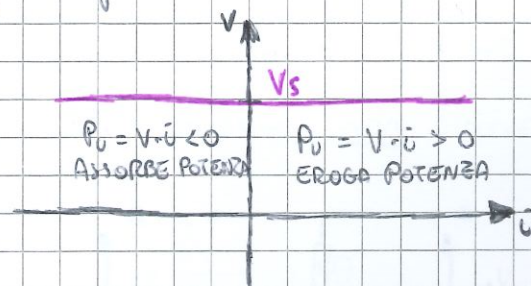 V
Vs
Pu = V·i < 0
ASSORBE POTENZA
Pu = V·i > 0
EROGA POTENZA
i